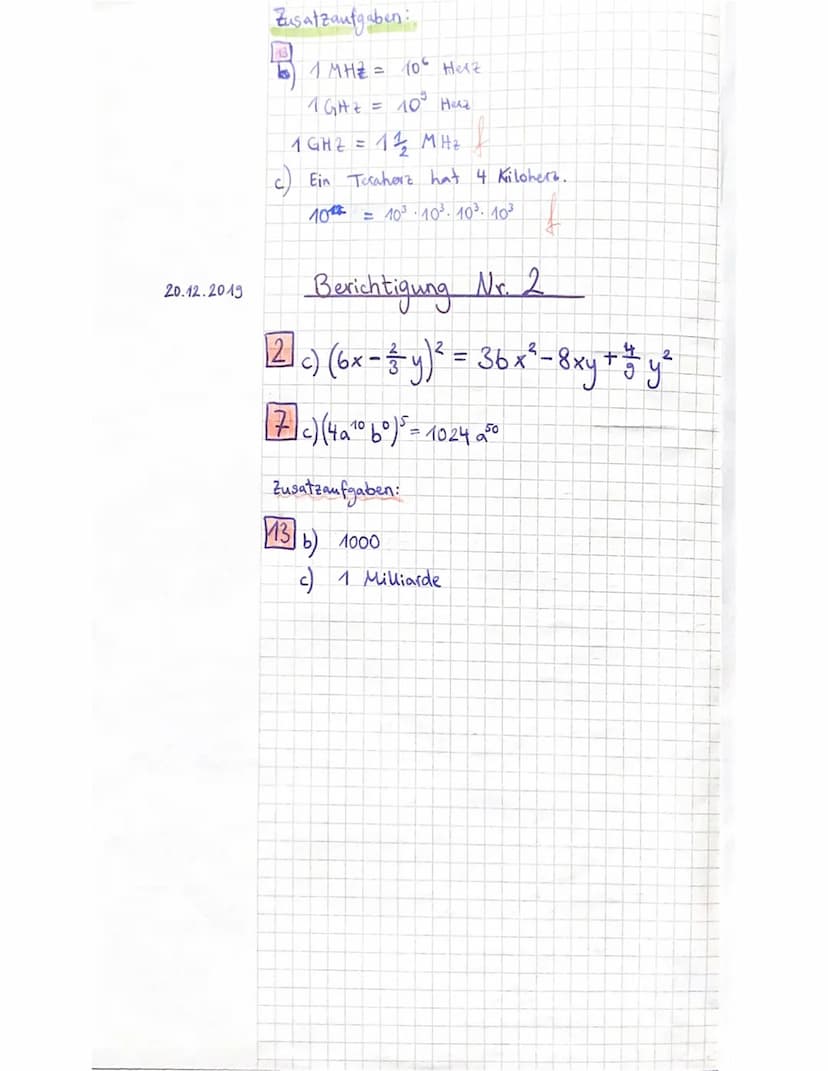 Zusatzaufgaben:
13
b) 1 MHz = 10⁶ Herz
1 GHz = 10⁹ Herz
1 GHz = 1 1/2 MHz f
c) Ein Teraherz hat 4 Kiloherz.
10¹² = 10³ · 10³ · 10³ · 10³ f
20.12.2019 Berichtigung Nr. 2
2 c) (6x - 2/3 y)² = 36x² - 8xy + 4/9 y²
7 c) (4a¹⁰ b⁰)⁵ = 1024 a⁵⁰
Zusatzaufgaben:
13 b) 1000
c) 1 Milliarde